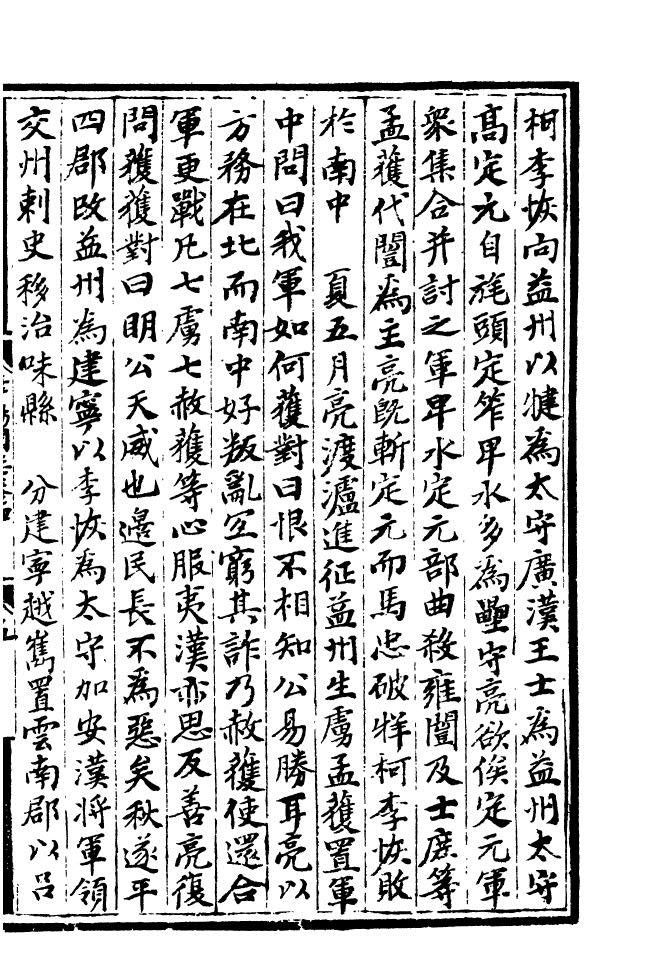 柯李恢向益州以犍為太守廣漢王士為益州太守
髙定元自旄頭定笮卑水多為壘守亮欲俟定元軍
衆集合并討之軍卑水定元部曲殺雍闓及士庶等
孟獲代闓為主亮既斬定元而馬忠破牂柯李恢敗
於南中　夏五月亮渡瀘進征益州生虜孟獲置軍
中問曰我軍如何獲對曰恨不相知公易勝耳亮以
方務在北而南中好叛亂宜窮其詐乃赦獲使還合
軍更戰凡七虜七赦獲等心服夷漢亦思反善亮復
問獲獲對曰明公天威也邊民長不為惡矣秋遂平
四郡改益州為建寧以李恢為太守加安漢將軍領
交州刺史移治味縣　分建寧越嶲置雲南郡以吕